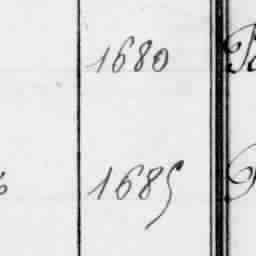 1680
1685